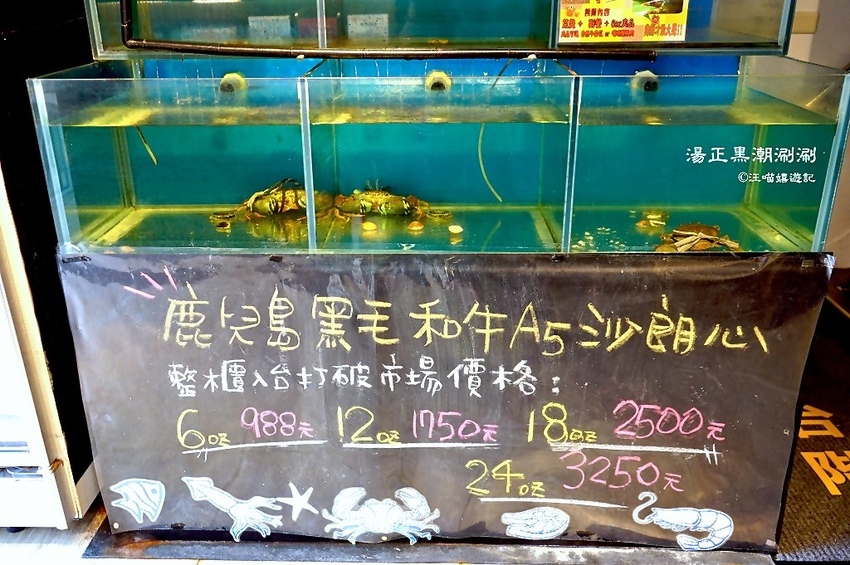 湯正黑潮涮涮
©汪喵嬉遊記
鹿兒島黑毛和牛A5沙朗心
整櫃入台打破市場價格：
6oz 988元 12oz 1750元 18oz 2500元
24oz 3250元